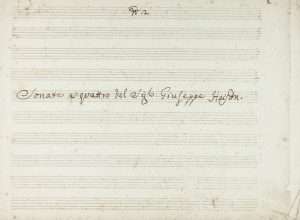 Sonata a quattro del Sig.r Giuseppe Haydn.